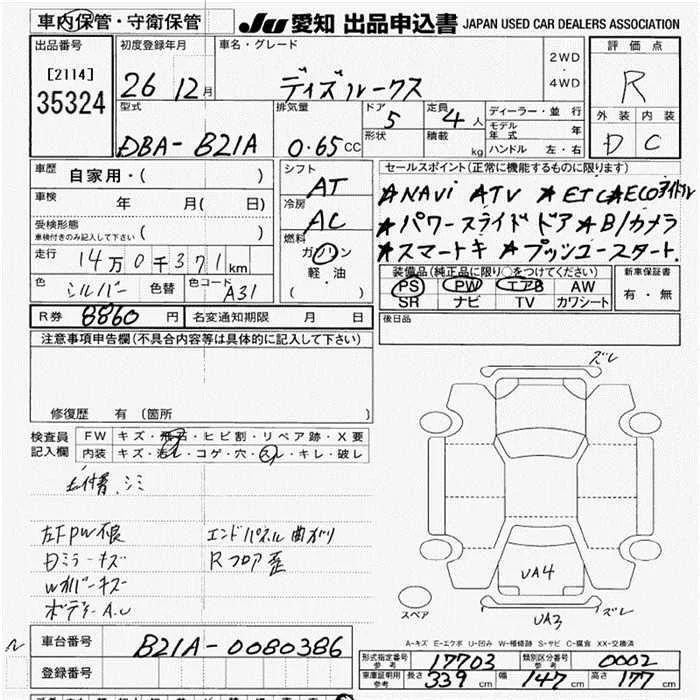 車内保管・守衛保管
JU 愛知 出品申込書 JAPAN USED CAR DEALERS ASSOCIATION
出品番号
[2114]
35324
初度登録年月
26 12月
車名・グレード
ディズルークス
2WD
・
4WD
評価点
R
外装 内装
D C
型式
DBA-B21A
排気量
0.65CC
ドア
5
形状
定員
4人
積載
kg
ディーラー・並行
モデル年式 年
ハンドル 左・右
車歴
自家用・( )
車検
年 月( 日)
受検形態
車検付きのみ記入して下さい ( )
走行
14万0千371km
色 シルバー 色替 色コード A31
シフト
AT
冷房
AC
燃料
ガソリン
軽油
( )
セールスポイント(正常に機能するものに限ります)
★NAVi ★TV ★ETC★ECO
★パワースライドドア★B/カメラ
★スマートキ ★プッシュースタート.
装備品(純正品に限り○をつけてください)
PS PW エアB AW
SR ナビ TV カワシート
新車保証書
有・無
R券 8860円 名変通知期限 月 日
後日品
注意事項申告欄(不具合内容等は具体的に記入して下さい)
修復歴 有(箇所 )
検査員
記入欄
FW キズ・飛石・ヒビ割・リペア跡・X要
内装 キズ・汚れ・コゲ・穴・スレ・キレ・破レ
シミ
左FPW不良
エンドパネル曲がり
ミラーキズ
Rフロア歪
カバーキズ
ボディーA.U
ズレ
UA4
スペア
UA3
ズレ
A-キズ E-エクボ U-凹み W-補修跡 S-サビ C-腐食 XX-交換済
車台番号 B21A-0080386
登録番号
形式指定番号
参考
17703
類別区分番号
参考
0002
車庫証明用
参考
長さ 339cm 幅 147cm 高さ 177cm